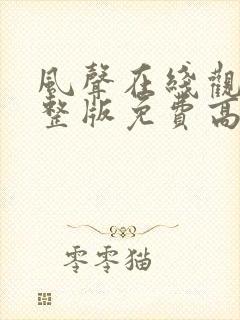 風聲在綫觀
整版免費高
零零猫